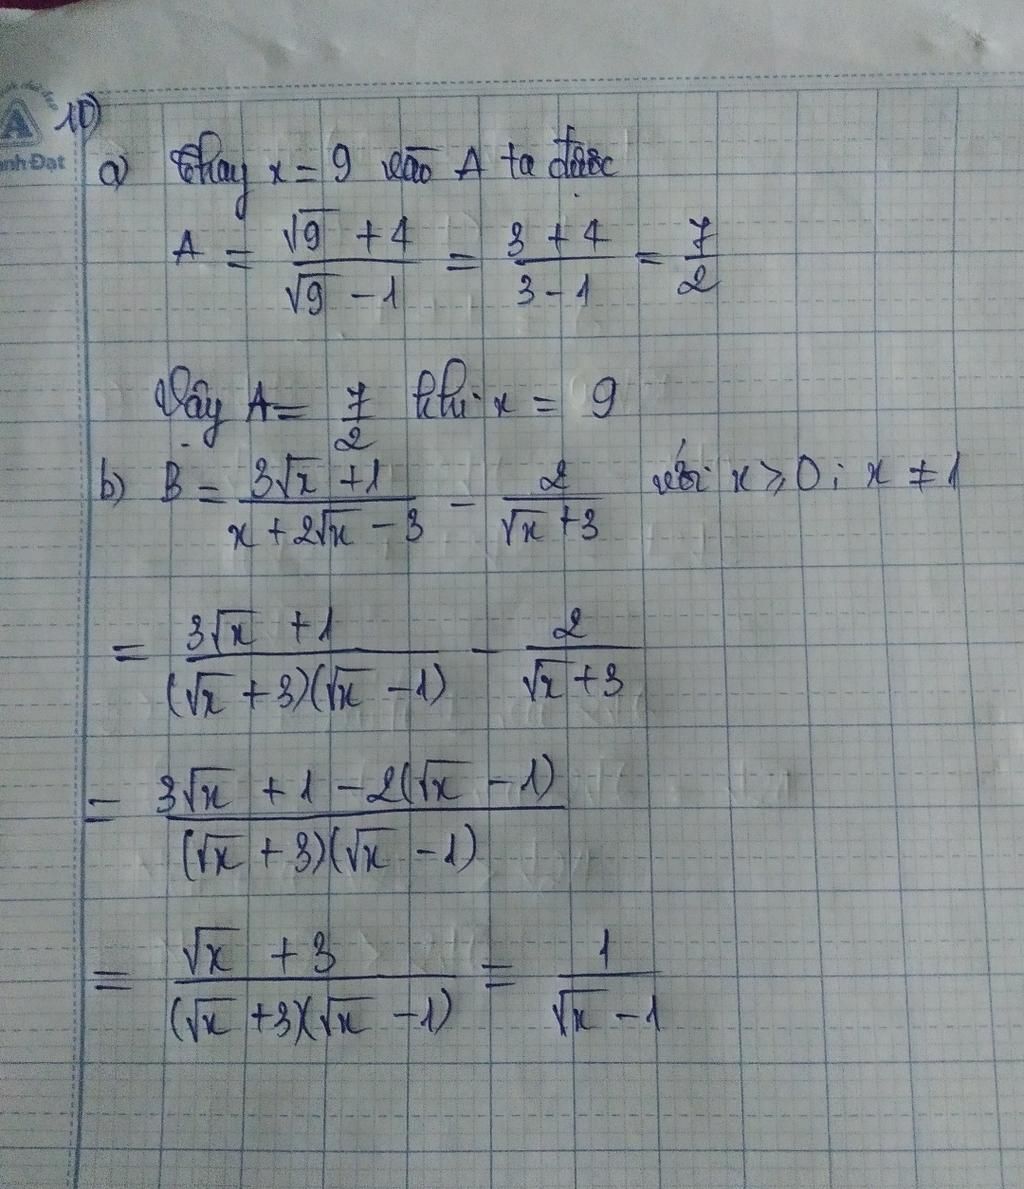 10)
a) Thay x = 9 vào A ta được
A = \frac{\sqrt{9} + 4}{\sqrt{9} - 1} = \frac{3 + 4}{3 - 1} = \frac{7}{2}
Vậy A = \frac{7}{2} khi x = 9
b) B = \frac{3\sqrt{x} + 1}{x + 2\sqrt{x} - 3} - \frac{2}{\sqrt{x} + 3} với x ⩾ 0 ; x ≠ 1
= \frac{3\sqrt{x} + 1}{(\sqrt{x} + 3)(\sqrt{x} - 1)} - \frac{2}{\sqrt{x} + 3}
= \frac{3\sqrt{x} + 1 - 2(\sqrt{x} - 1)}{(\sqrt{x} + 3)(\sqrt{x} - 1)}
= \frac{\sqrt{x} + 3}{(\sqrt{x} + 3)(\sqrt{x} - 1)} = \frac{1}{\sqrt{x} - 1}